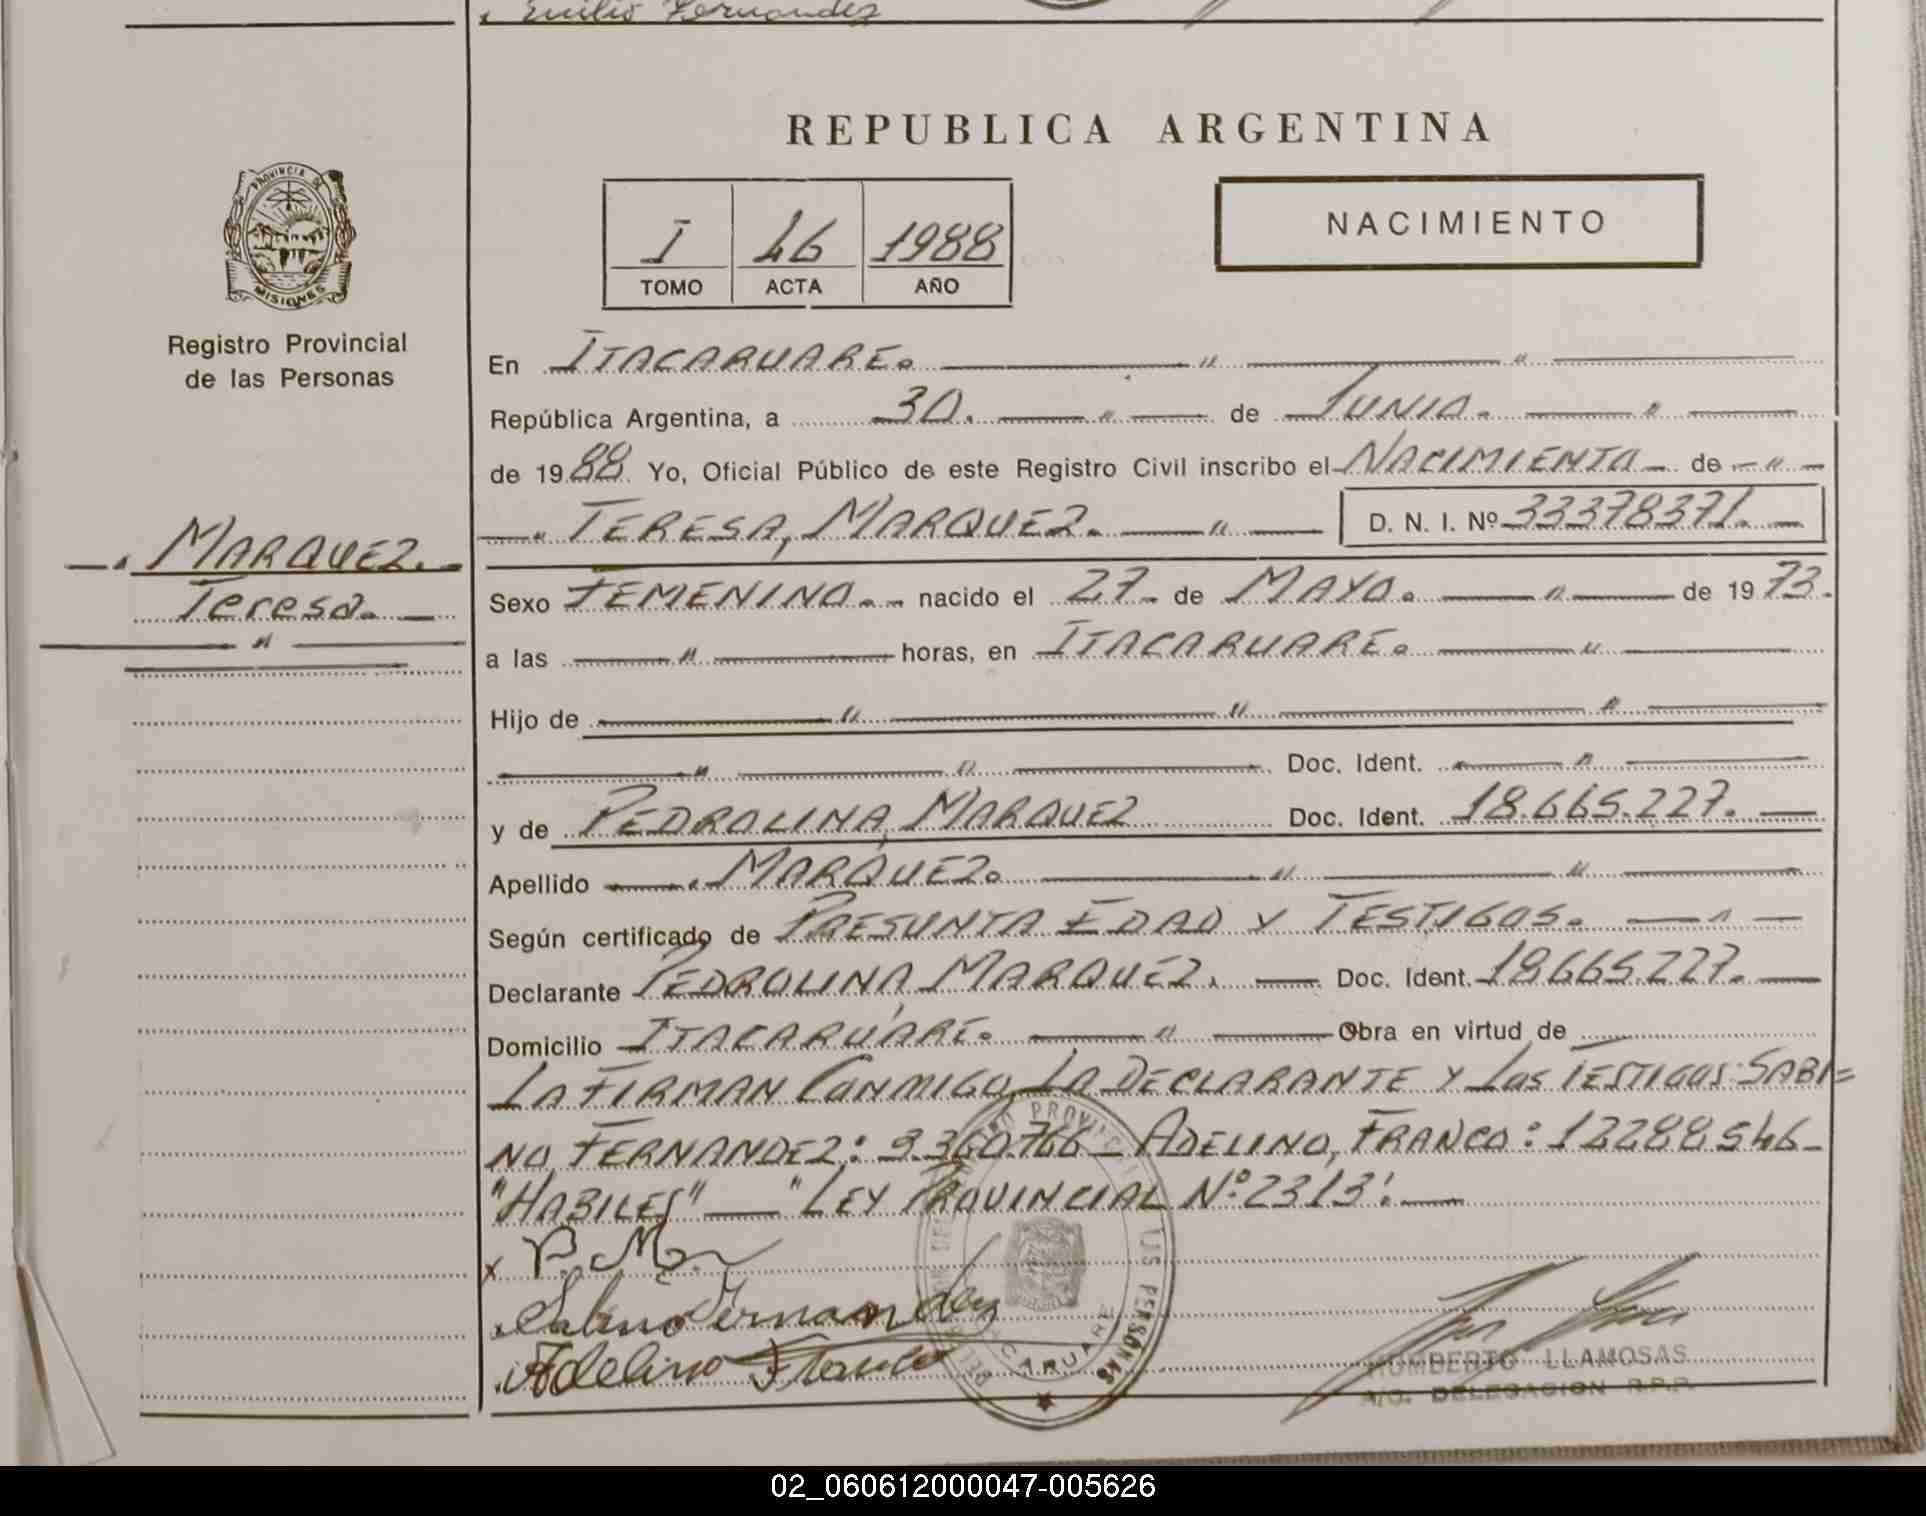 Emilio Fernandez
REPUBLICA ARGENTINA
PROVINCIA DE
MISIONES
Registro Provincial
de las Personas
I 46 1988
TOMO ACTA AÑO
NACIMIENTO
En ITACARUARE.
República Argentina, a 30. de JUNIO.
de 1988. Yo, Oficial Público de este Registro Civil inscribo el NACIMIENTO de
TERESA, MARQUEZ. D. N. I. Nº 33378371.
MARQUEZ.
Teresa.
Sexo FEMENINO. nacido el 27 de MAYO. de 1973.
a las horas, en ITACARUARE.
Hijo de
Doc. Ident.
y de PEDROLINA, MARQUEZ Doc. Ident. 18.665.227.
Apellido MARQUEZ.
Según certificado de PRESUNTA EDAD Y TESTIGOS.
Declarante PEDROLINA, MARQUEZ. Doc. Ident. 18.665.227.
Domicilio ITACARUARE. Obra en virtud de
LA FIRMAN CONMIGO, LA DECLARANTE Y LOS TESTIGOS: SABI=
NO, FERNANDEZ: 9.360.766 - ADELINO, FRANCO: 12288546-
"HABILES" — "LEY PROVINCIAL Nº 2313".
x P. M.
Sabino Fernandez
Adelino Franco
HUMBERTO LLAMOSAS
A/C. DELEGACION R.P.P.
02_060612000047-005626